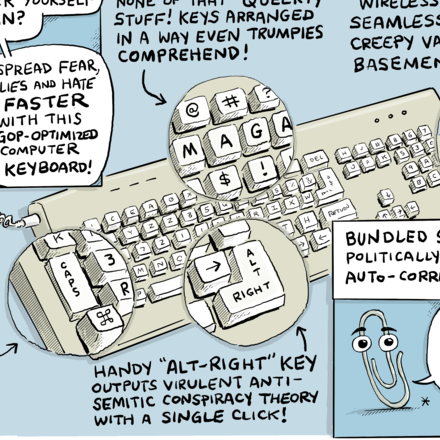 YOURSELF
N?
SPREAD FEAR,
LIES AND HATE
FASTER
WITH THIS
GOP-OPTIMIZED
COMPUTER
KEYBOARD!
NONE OF THAT "QUEERTY"
STUFF! KEYS ARRANGED
IN A WAY EVEN TRUMPIES
COMPREHEND!
WIRELESS
SEAMLESS
CREEPY VA
BASEMEN
@ # ?
M A G A
$ !
DEL
RETURN
K
CAPS
3
R
⌘
→
ALT
RIGHT
HANDY "ALT-RIGHT" KEY
OUTPUTS VIRULENT ANTI-
SEMITIC CONSPIRACY THEORY
WITH A SINGLE CLICK!
BUNDLED S
POLITICALLY
AUTO-CORR
*